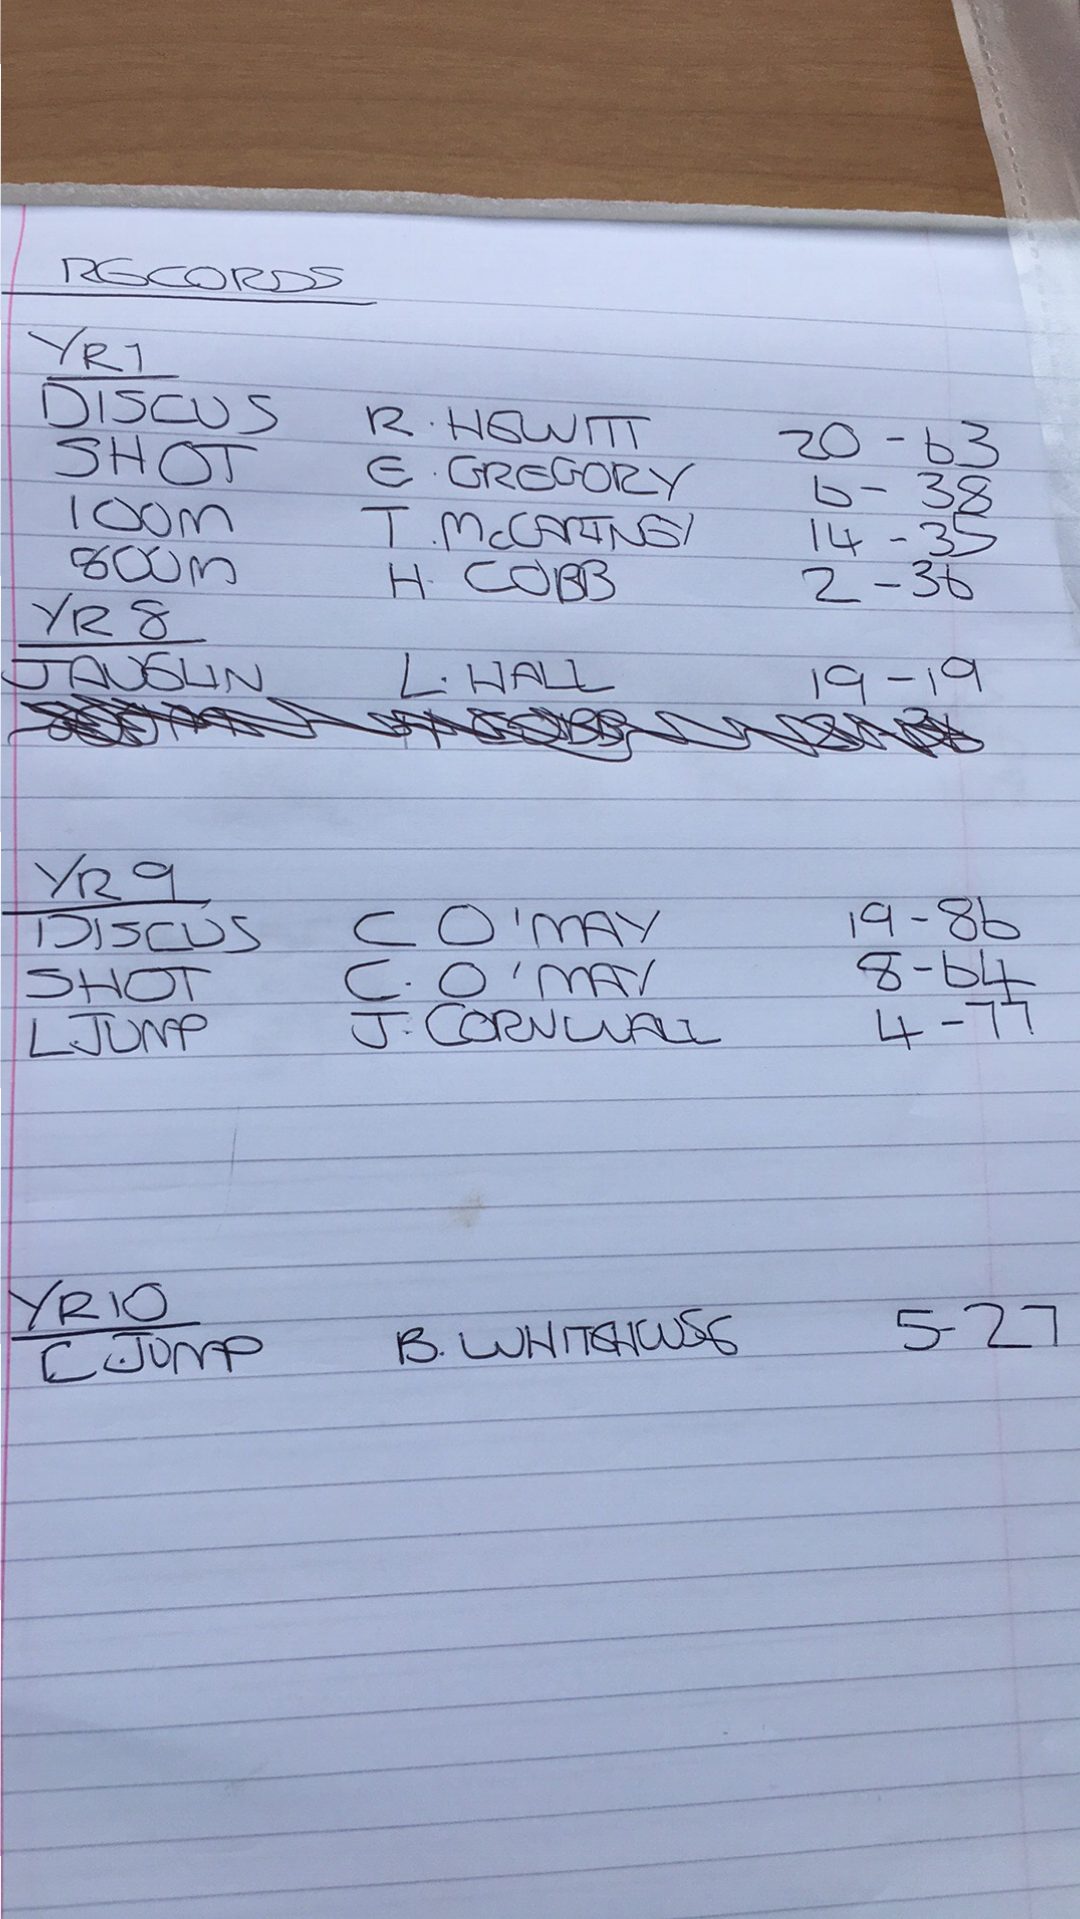 RECORDS
YR7
DISCUS R. HEWITT 20-63
SHOT E. GREGORY 6-38
100m T. McCARTNEY 14-35
800m H. COBB 2-36
YR 8
JAVELIN L. HALL 19-19
YR 9
DISCUS C O'MAY 19-86
SHOT C. O'MAY 8-64
L JUMP J. CORNWALL 4-77
YR10
L JUMP B. WHITEHOUSE 5-27